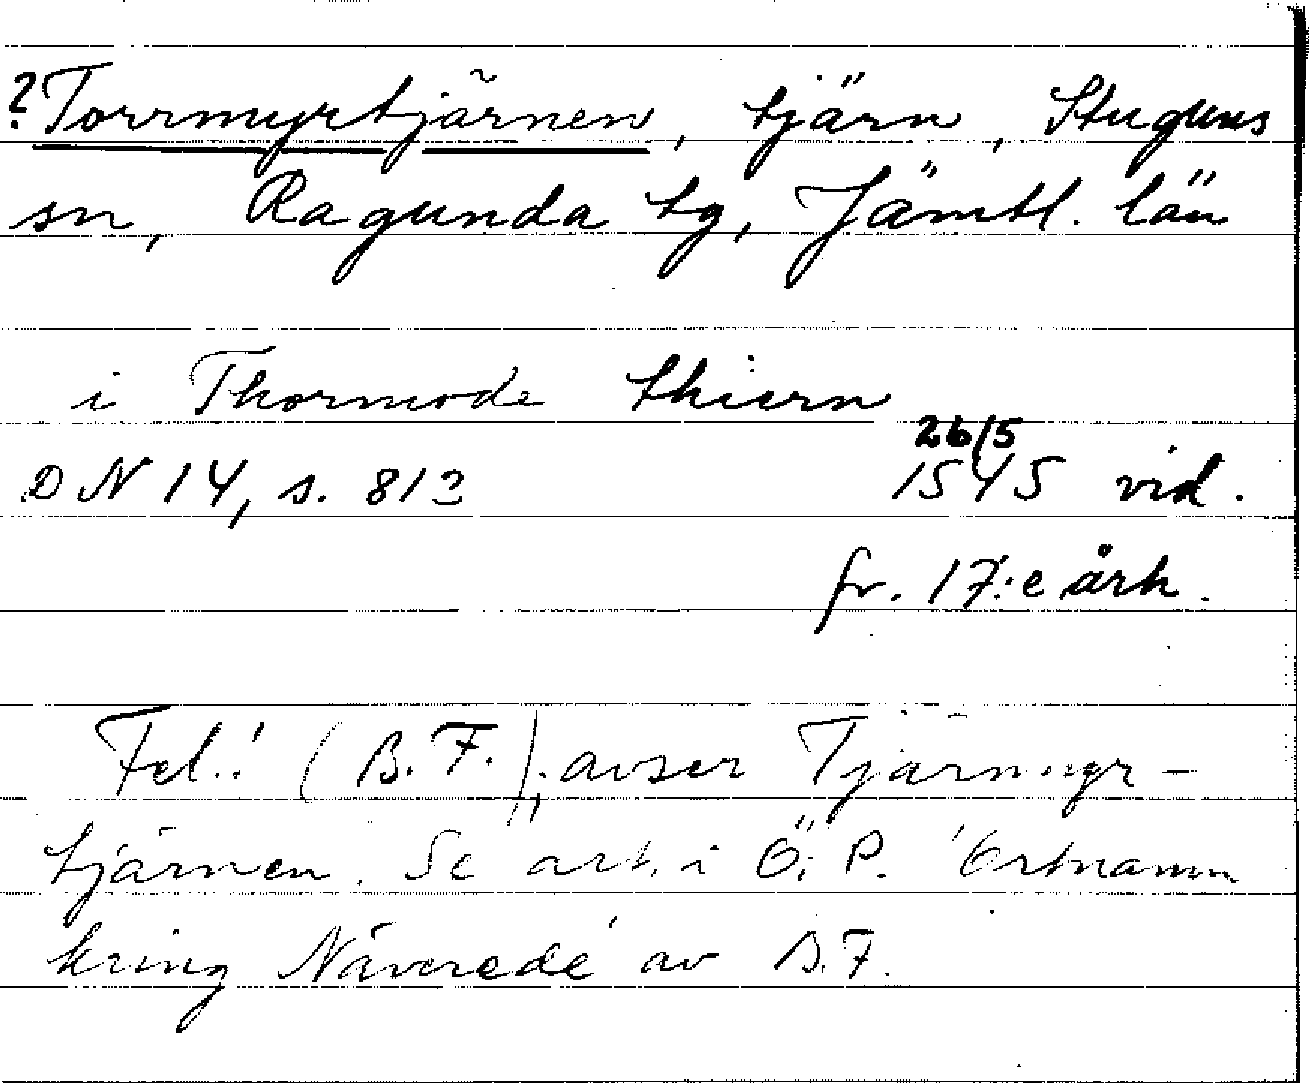 ?Torrmyrtjärnen, tjärn, Stuguns
sn, Ragunda tg, Jämtl. län
i Thormode thiern
26/5
DN 14, s. 813 1545 vid.
fr. 17:e årh.
Fel! (B.F.), avser Tjärnmyr-
tjärnen. Se art. i Ö.P. 'Ortnamn
kring Näverede' av B.F.